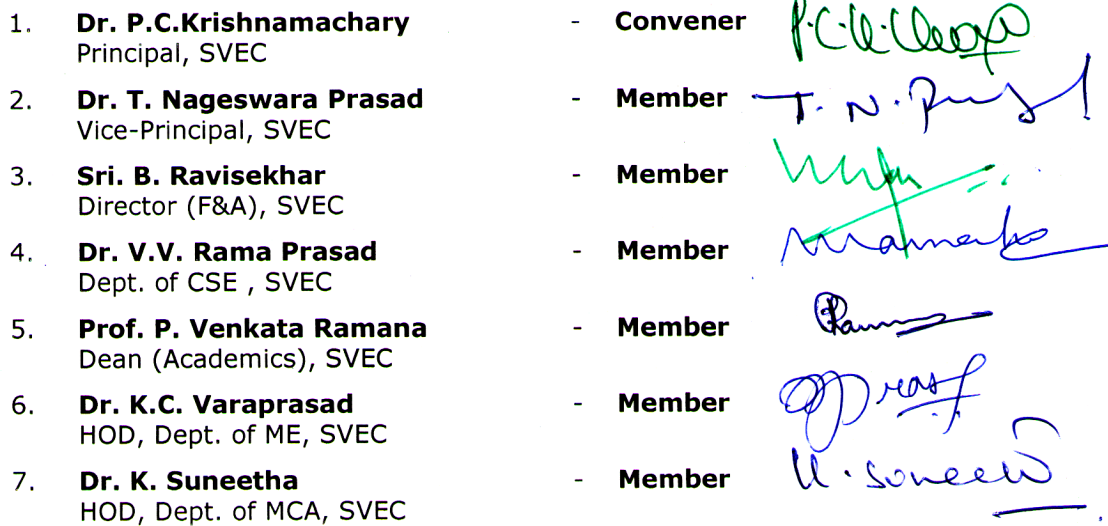 1. Dr. P.C.Krishnamachary - Convener
Principal, SVEC
2. Dr. T. Nageswara Prasad - Member T. N. Prasad
Vice-Principal, SVEC
3. Sri. B. Ravisekhar - Member
Director (F&A), SVEC
4. Dr. V.V. Rama Prasad - Member
Dept. of CSE , SVEC
5. Prof. P. Venkata Ramana - Member
Dean (Academics), SVEC
6. Dr. K.C. Varaprasad - Member
HOD, Dept. of ME, SVEC
7. Dr. K. Suneetha - Member
HOD, Dept. of MCA, SVEC